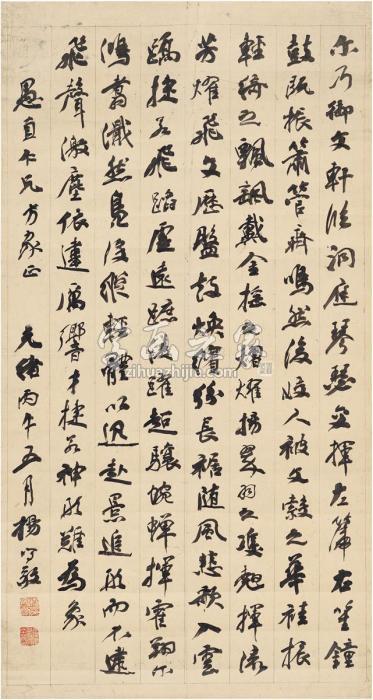 尔乃御文軒臨洞庭琴瑟交揮左篪右笙鐘
鼓既振簫管齊鳴然後姣人被文縠之華袿振
輕綺之飄颻戴金摇之熠耀揚翠羽之雙翹揮流
芳燿飛文歷盤鼓焕繽紛長裾随風悲歌入雲
蹻捷若飛蹈虚遠蹠凌躍超驤蜿蟬揮霍翔尔
鴻翥濈然凫没縱輕體以迅赴景追形而不逮
飛聲激塵依違厲響才捷若神形難為象
愚直仁兄方家正 光緒丙午五月楊守敬
zihuazhijia.com